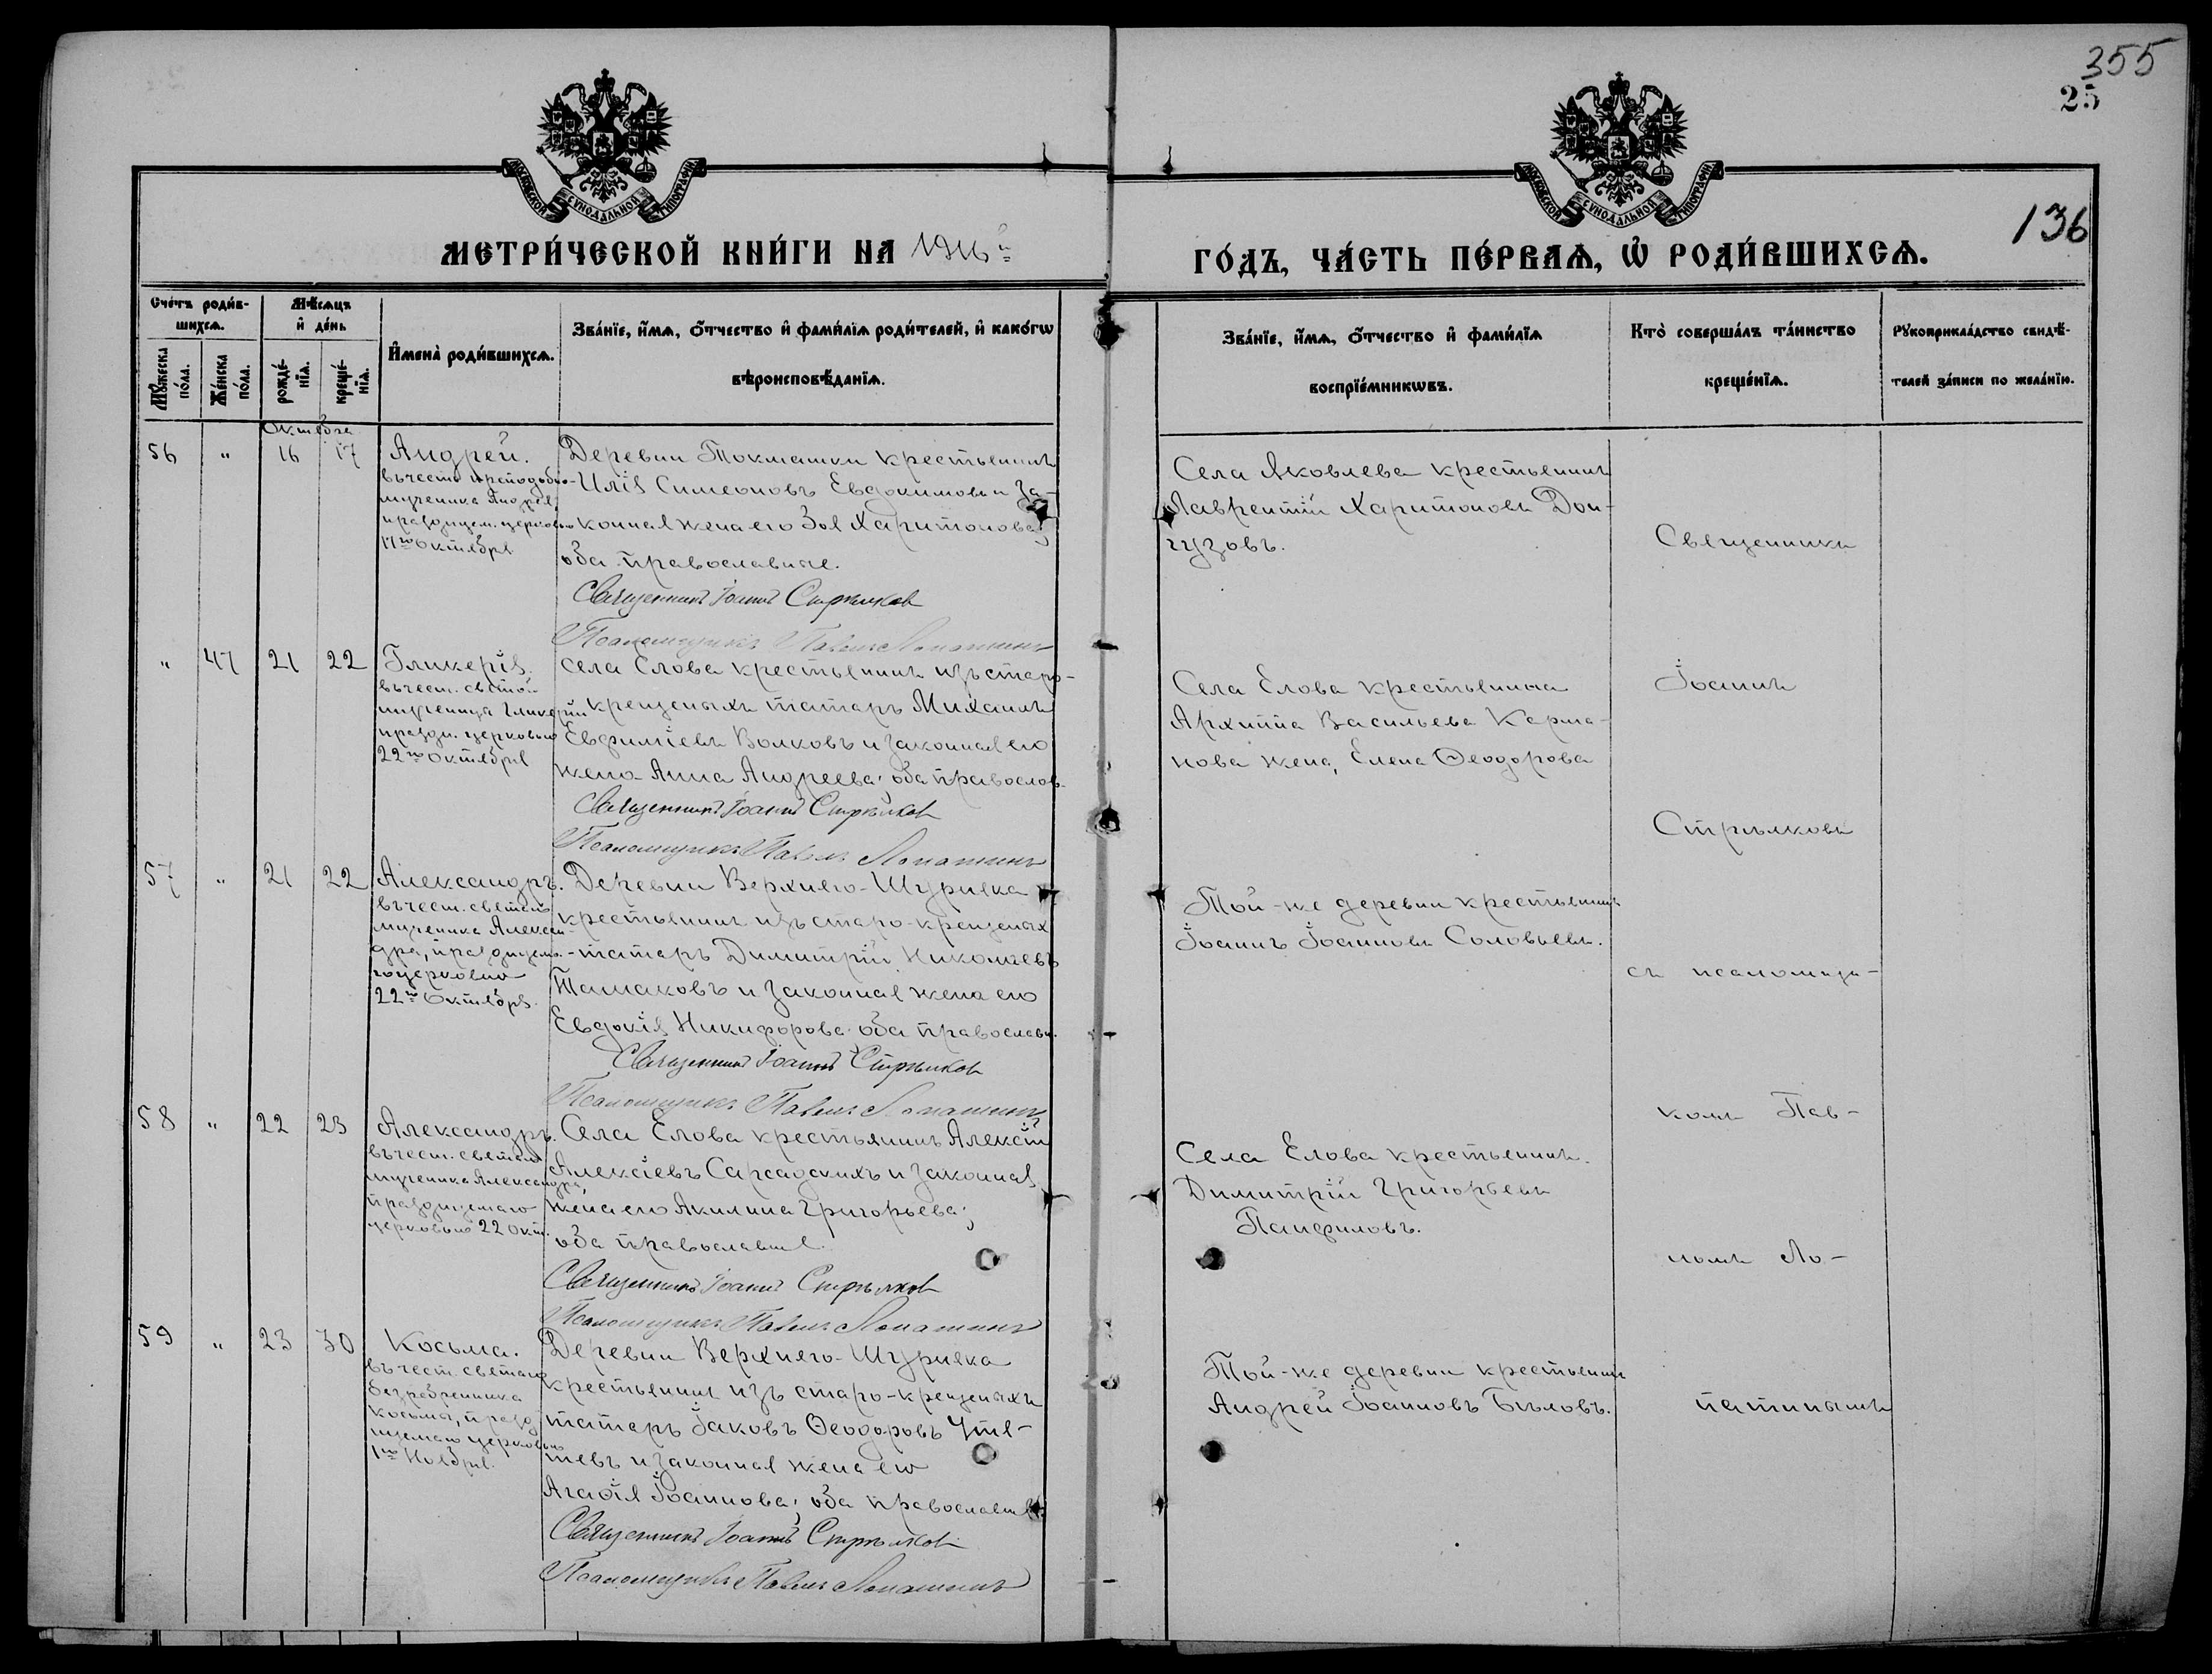 355
25
136
МОСКОВСКОЙ СѴНОДАЛЬНОЙ ТИПОГРАФІИ
МОСКОВСКОЙ СѴНОДАЛЬНОЙ ТИПОГРАФІИ
МЕТРИ́ЧЕСКОЙ КНИ́ГИ НА 1916й
ГО́ДЪ, ЧА́СТЬ ПЕ́РВАѦ, Ѡ҆ РОДИ́ВШИХСѦ.
Сче́тъ роди́в-
шихсѧ.
Мꙋ́жеска по́ла.
Же́нска по́ла.
Мѣ́сѧцъ
и҆ де́нь
рожде́-
нїѧ.
креще́-
нїѧ.
И҆мена̀ роди́вшихсѧ.
Зва́нїе, и҆́мѧ, ѻ҆́тчество и҆ фами́лїѧ роди́телей, и҆ како́гѡ
вѣроисповѣ́данїѧ.
Зва́нїе, и҆́мѧ, ѻ҆́тчество и҆ фами́лїѧ
воспрїе́мникѡвъ.
Кто̀ соверша́лъ та́инство
креще́нїѧ.
Рꙋкоприкла́дство свидѣ́-
телей за́писи по жела́нїю.
Октября
56 " 16 17 Андрей.
въ честь преподобно-
мученика Андрея,
празднуем. церковью
17го Октября
Деревни Токмашки крестьянинъ
Илія Симеоновъ Евдокимовъ и за-
конная жена его Зоя Харитонова;
оба православные.
Священникъ Іоаннъ Стрѣлковъ
Псаломщикъ Павелъ Лопатинъ
Села Яковлева крестьянинъ
Лаврентій Харитоновъ Дон-
гузовъ.
" 47 21 22 Гликерія.
въ чест. святой
мученицы Гликеріи
праздн. церковью
22го Октября
Села Елова крестьянинъ изъ старо-
крещеныхъ татаръ Михаилъ
Евфиміевъ Волковъ и законная его
жена Анна Андреева; оба православ.
Священникъ Іоаннъ Стрѣлковъ
Псаломщикъ Павелъ Лопатинъ
Села Елова крестьянина
Архиппа Васильева Карма-
нова жена, Елена Ѳеодорова
57 " 21 22 Александръ.
въ чест. святаго
мученика Алексан-
дра, празднуема-
го церковью
22го Октября.
Деревни Верхняго-Шурняка
крестьянинъ изъ старо-крещеныхъ
-татаръ Димитрій Николаевъ
Тамаковъ и законная жена его
Евдокія Никифорова; оба православн.
Священникъ Іоаннъ Стрѣлковъ
Псаломщикъ Павелъ Лопатинъ
Той-же деревни крестьянинъ
Іоаннъ Іоанновъ Соловьевъ.
58 " 22 23 Александръ.
въ чест. святаго
мученика Александра
празднуемаго
церковью 22 Окт.
Села Елова крестьянинъ Алексій
Алексіевъ Сарсадскихъ и законная
жена его Акилина Григорьева;
оба православные.
Священникъ Іоаннъ Стрѣлковъ
Псаломщикъ Павелъ Лопатинъ
Села Елова крестьянинъ
Димитрій Григорьевъ
Панфиловъ.
59 " 23 30 Косьма.
въ чест. святаго
безсребренника
Косьмы, праздн-
уемаго церковью
1го Ноября.
Деревни Верхняго-Шурняка
крестьянинъ изъ старо-крещеныхъ
татаръ Іаковъ Ѳеодоровъ Утя-
шевъ и законная жена его
Агаѳія Іоаннова; оба православные.
Священникъ Іоаннъ Стрѣлковъ
Псаломщикъ Павелъ Лопатинъ
Той-же деревни крестьянинъ
Андрей Іоанновъ Бѣловъ.
Священникъ
Іоаннъ
Стрѣлковъ
съ псаломщи-
комъ Пав-
ломъ Ло-
патинымъ